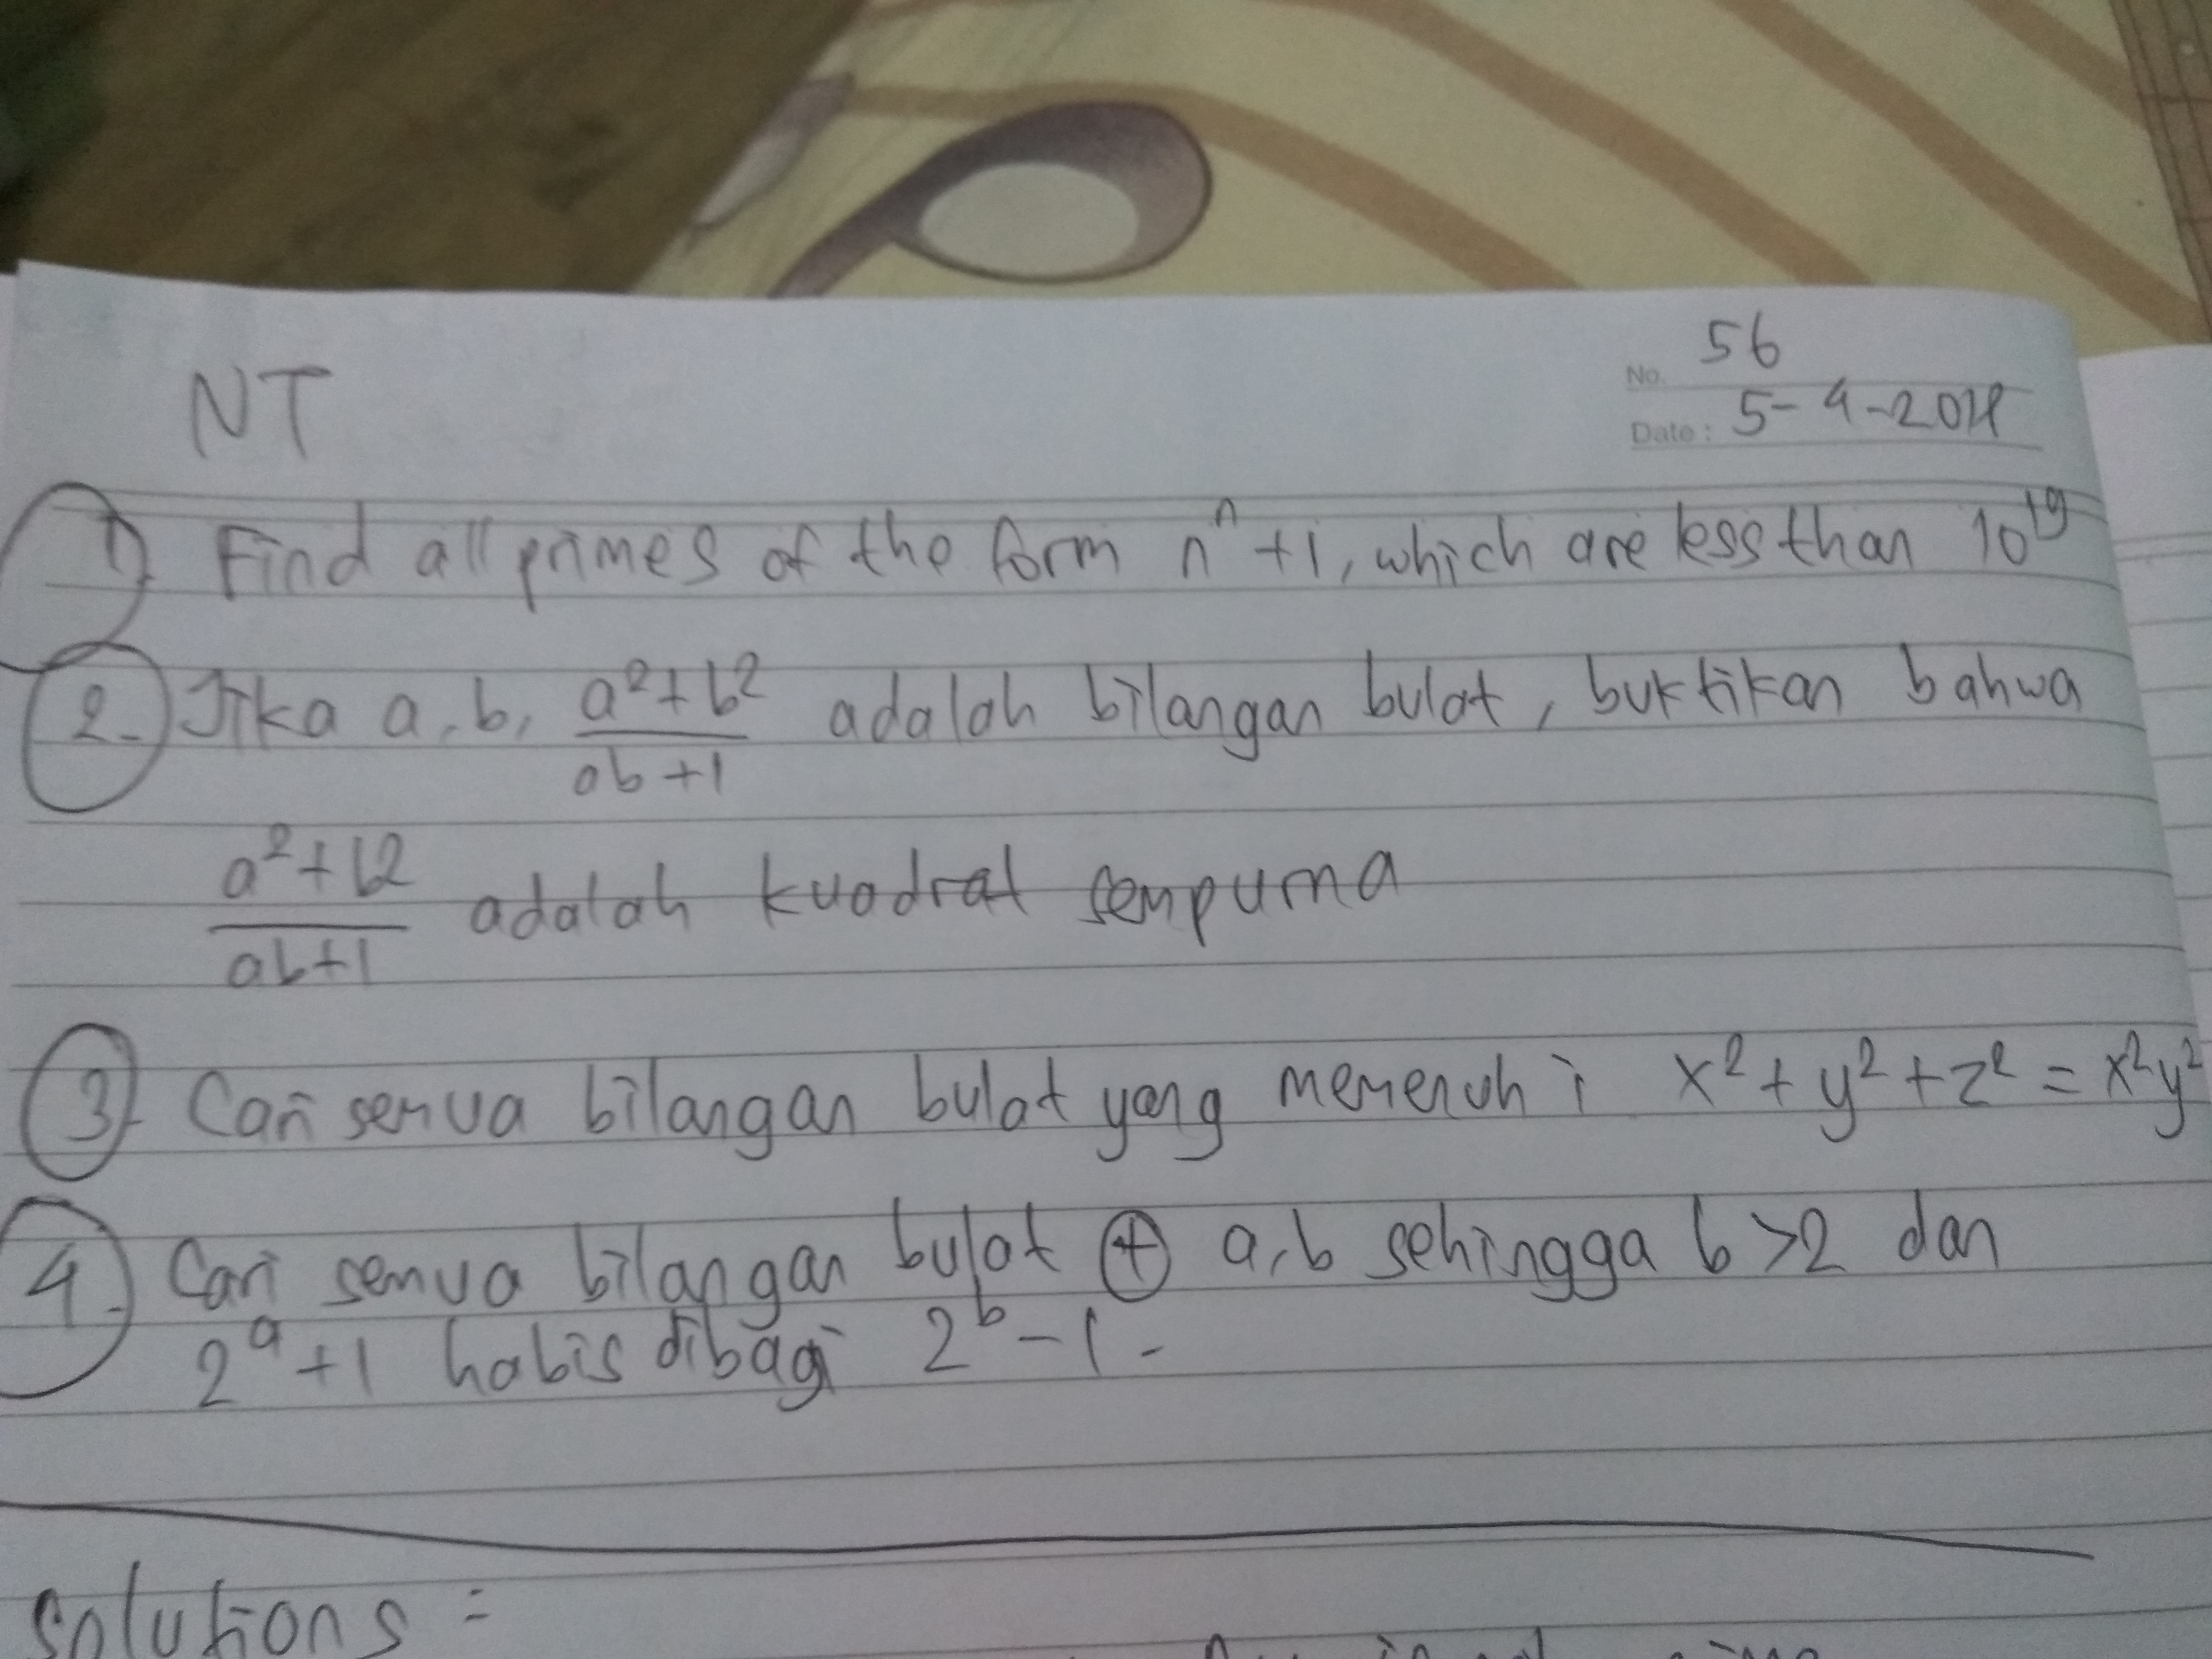 NT
No. 56
Date: 5-4-2018
1) Find all primes of the form n^n + 1, which are less than 10^19
2. Jika a, b, (a^2+b^2)/(ab+1) adalah bilangan bulat, buktikan bahwa
(a^2+b^2)/(ab+1) adalah kuadrat sempurna
3. Cari semua bilangan bulat yang memenuhi x^2 + y^2 + z^2 = x^2y^2
4. Cari semua bilangan bulat ⊕ a, b sehingga b > 2 dan
2^a + 1 habis dibagi 2^b - 1 -
Solutions =